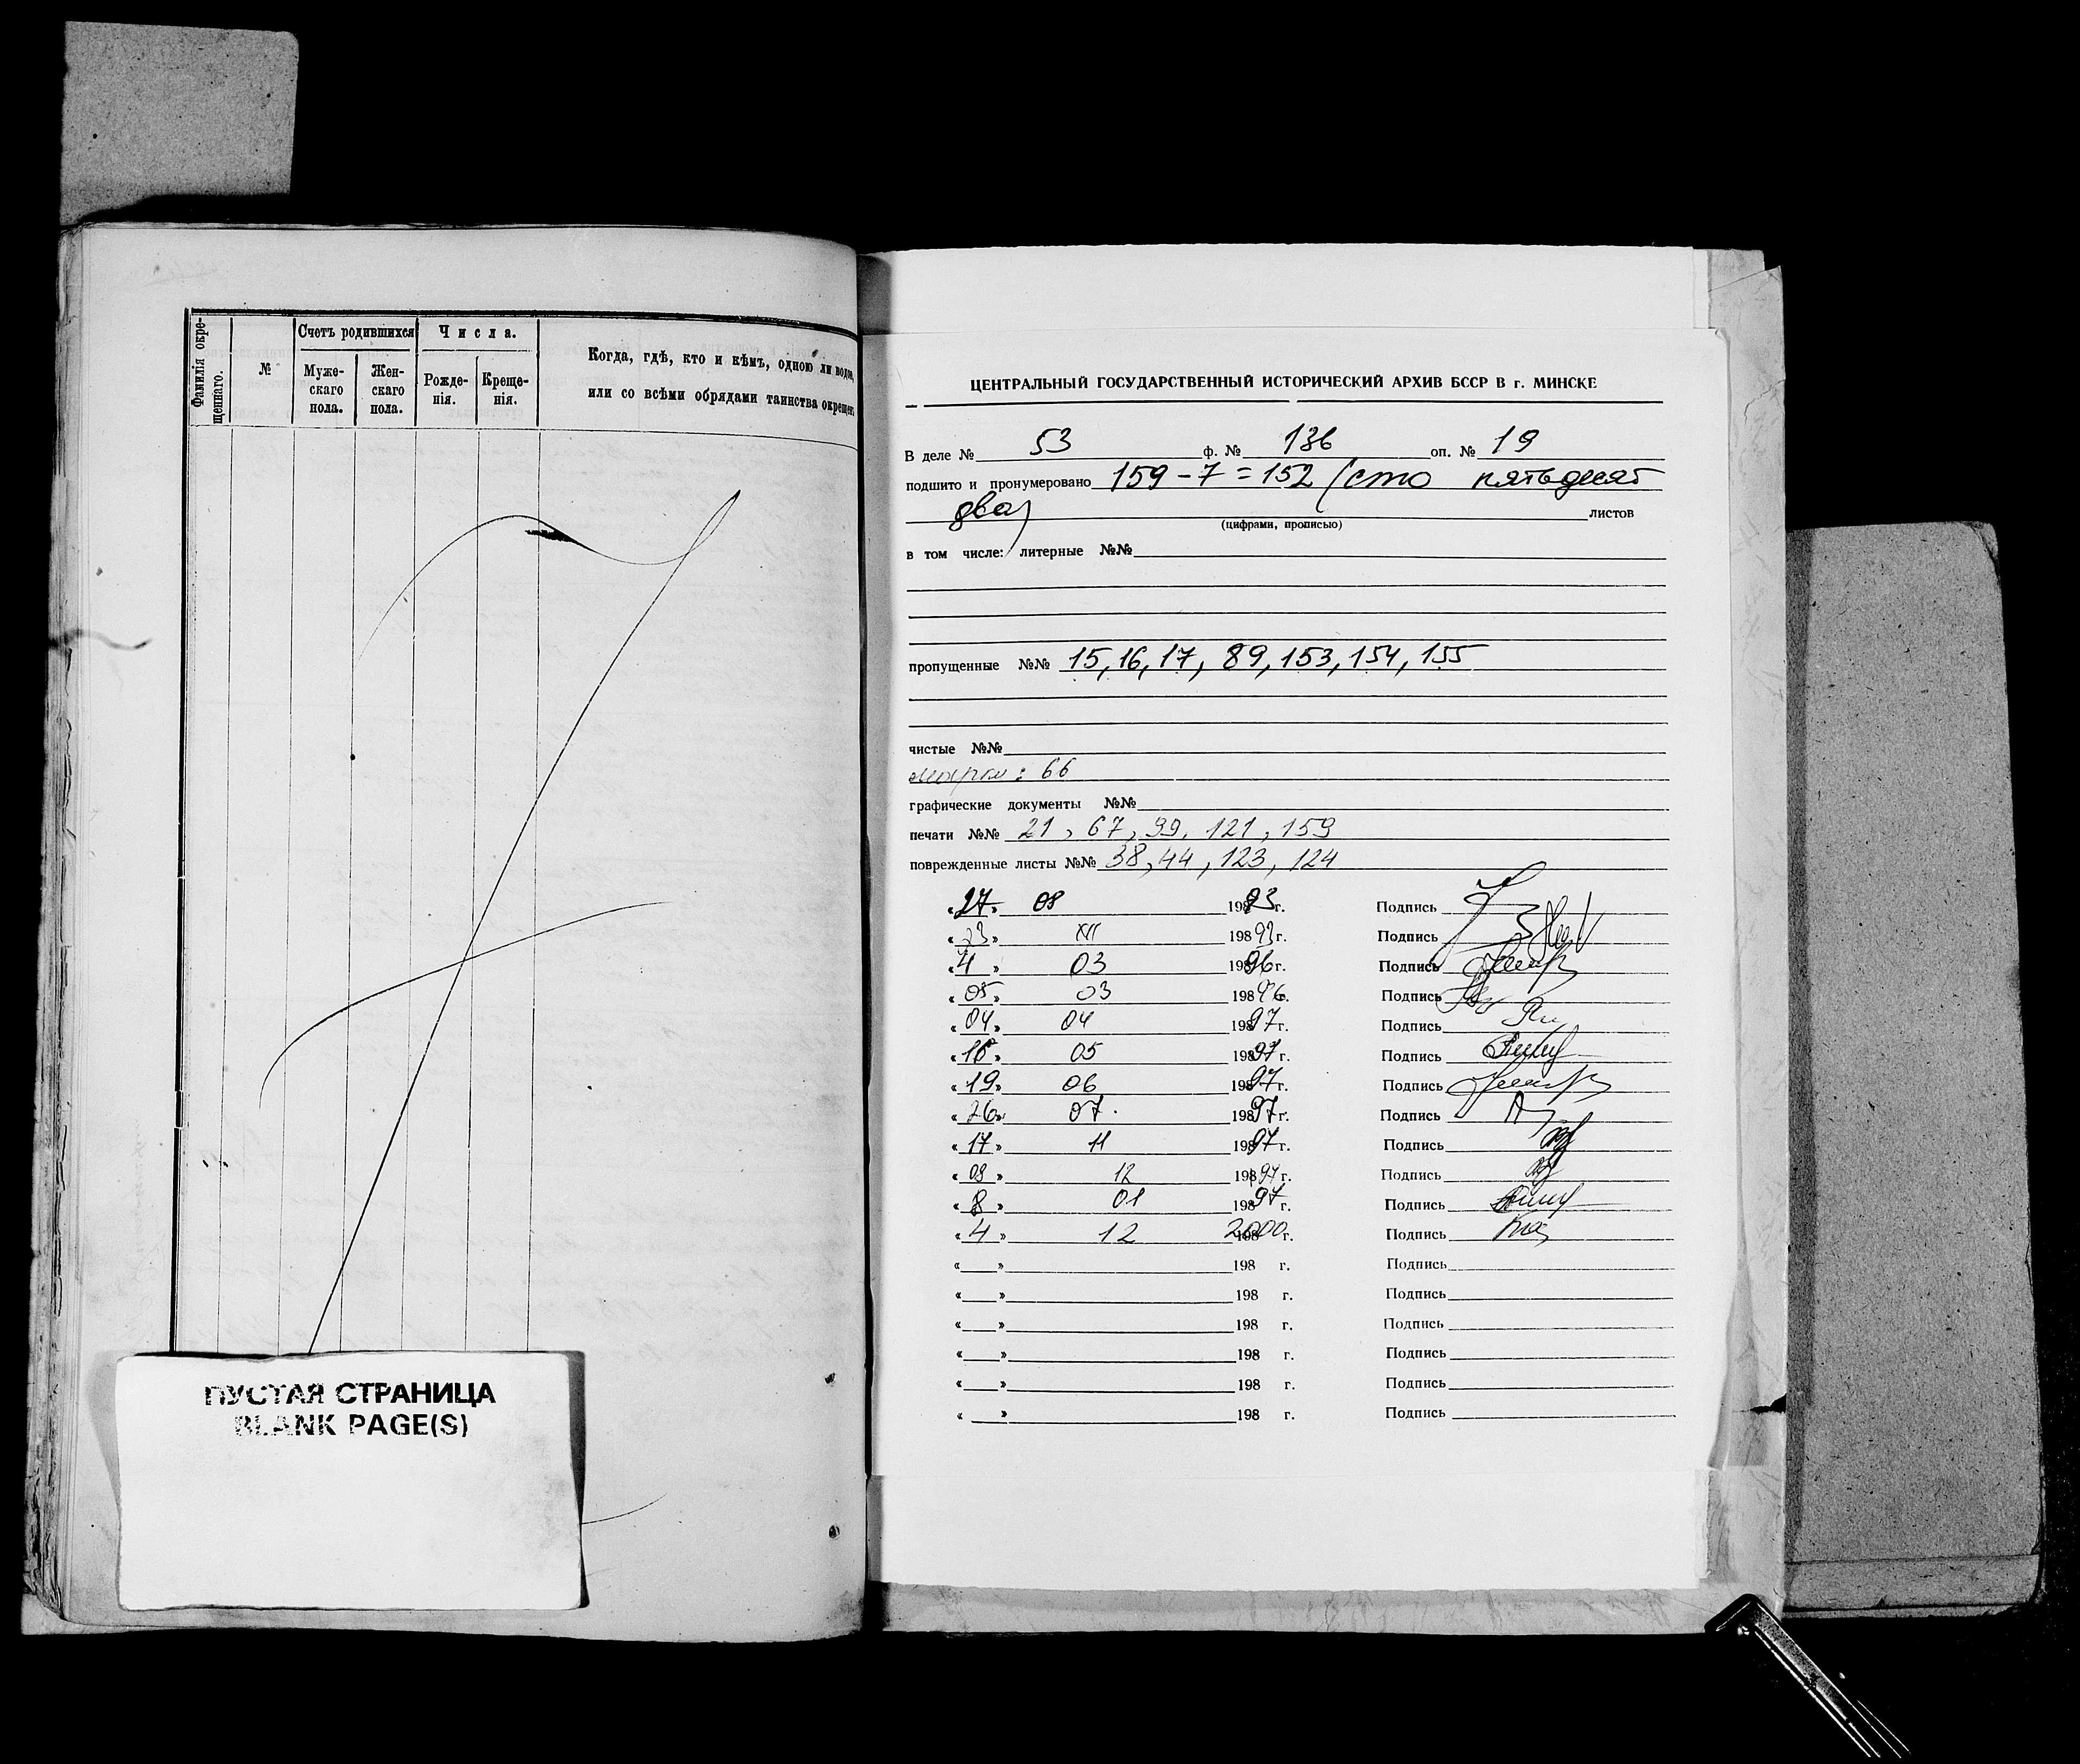 Фамилія окре-
щеннаго.
№
Счетъ родившихся
Муже-
скаго
пола.
Жен-
скаго
пола.
Числа.
Рожде-
нія.
Креще-
нія.
Когда, гдѣ, кто и кѣмъ, одною ли водою,
или со всѣми обрядами таинства окрещенъ
ПУСТАЯ СТРАНИЦА
BLANK PAGE(S)
ЦЕНТРАЛЬНЫЙ ГОСУДАРСТВЕННЫЙ ИСТОРИЧЕСКИЙ АРХИВ БССР В г. МИНСКЕ
В деле № 53 ф. № 136 оп. № 19
подшито и пронумеровано 159 - 7 = 152 (сто пятьдесят
два) листов
(цифрами, прописью)
в том числе: литерные №№
пропущенные №№ 15, 16, 17, 89, 153, 154, 155
чистые №№
марки: 66
графические документы №№
печати №№ 21, 67, 99, 121, 159
поврежденные листы №№ 38, 44, 123, 124
«27» 08 19893г. Подпись
«23» XII 19893г. Подпись
«4» 03 19896г. Подпись
«05» 03 19896г. Подпись
«04» 04 19897г. Подпись
«16» 05 19897г. Подпись
«19» 06 19897г. Подпись
«26» 07. 19897г. Подпись
«17» 11 19897г. Подпись
«08» 12 19897г. Подпись
«8» 01 19897г. Подпись
«4» 12 2000г. Подпись
« » 198 г. Подпись
« » 198 г. Подпись
« » 198 г. Подпись
« » 198 г. Подпись
« » 198 г. Подпись
« » 198 г. Подпись